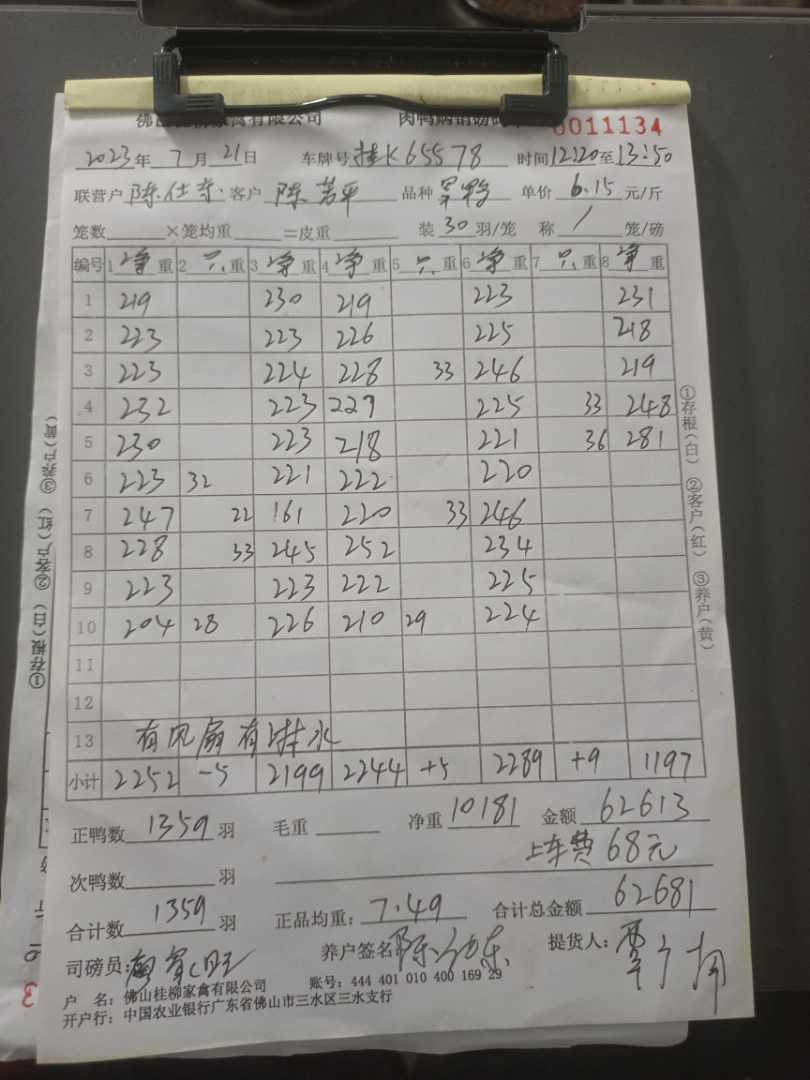 0011134
2023年 7月 21日 车牌号 桂K65578 时间12:20至13:50
联营户 陈仕 客户 陈 平 品种 单价 6.15 元/斤
笼数 ×笼均重 =皮重 装 30 羽/笼 称 / 笼/磅
编号 1 净重 2 只重 3 净重 4 净重 5 只重 6 净重 7 只重 8 净重
1 219 230 219 223 231
2 223 223 226 225 218
3 223 224 228 33 246 219
4 232 223 227 225 33 248
5 230 223 218 221 36 281
6 223 32 221 222 220
7 247 22 161 220 33 246
8 228 33 245 252 234
9 223 223 222 225
10 204 28 226 210 29 224
11
12
13 有风扇有排水
小计 2252 -5 2199 2244 +5 2289 +9 1197
正鸭数 1359 羽 毛重 净重 10181 金额 62613
上车费 68元
次鸭数 羽
合计数 1359 羽 正品均重: 7.49 合计总金额 62681
司磅员: 养户签名 陈 提货人:
户 名: 佛山桂柳家禽有限公司 账号: 444 401 010 400 169 29
开户行: 中国农业银行广东省佛山市三水区三水支行
①存根(白) ②客户(红) ③养户(黄)
①存根(白) ②客户(红) ③养户(黄)